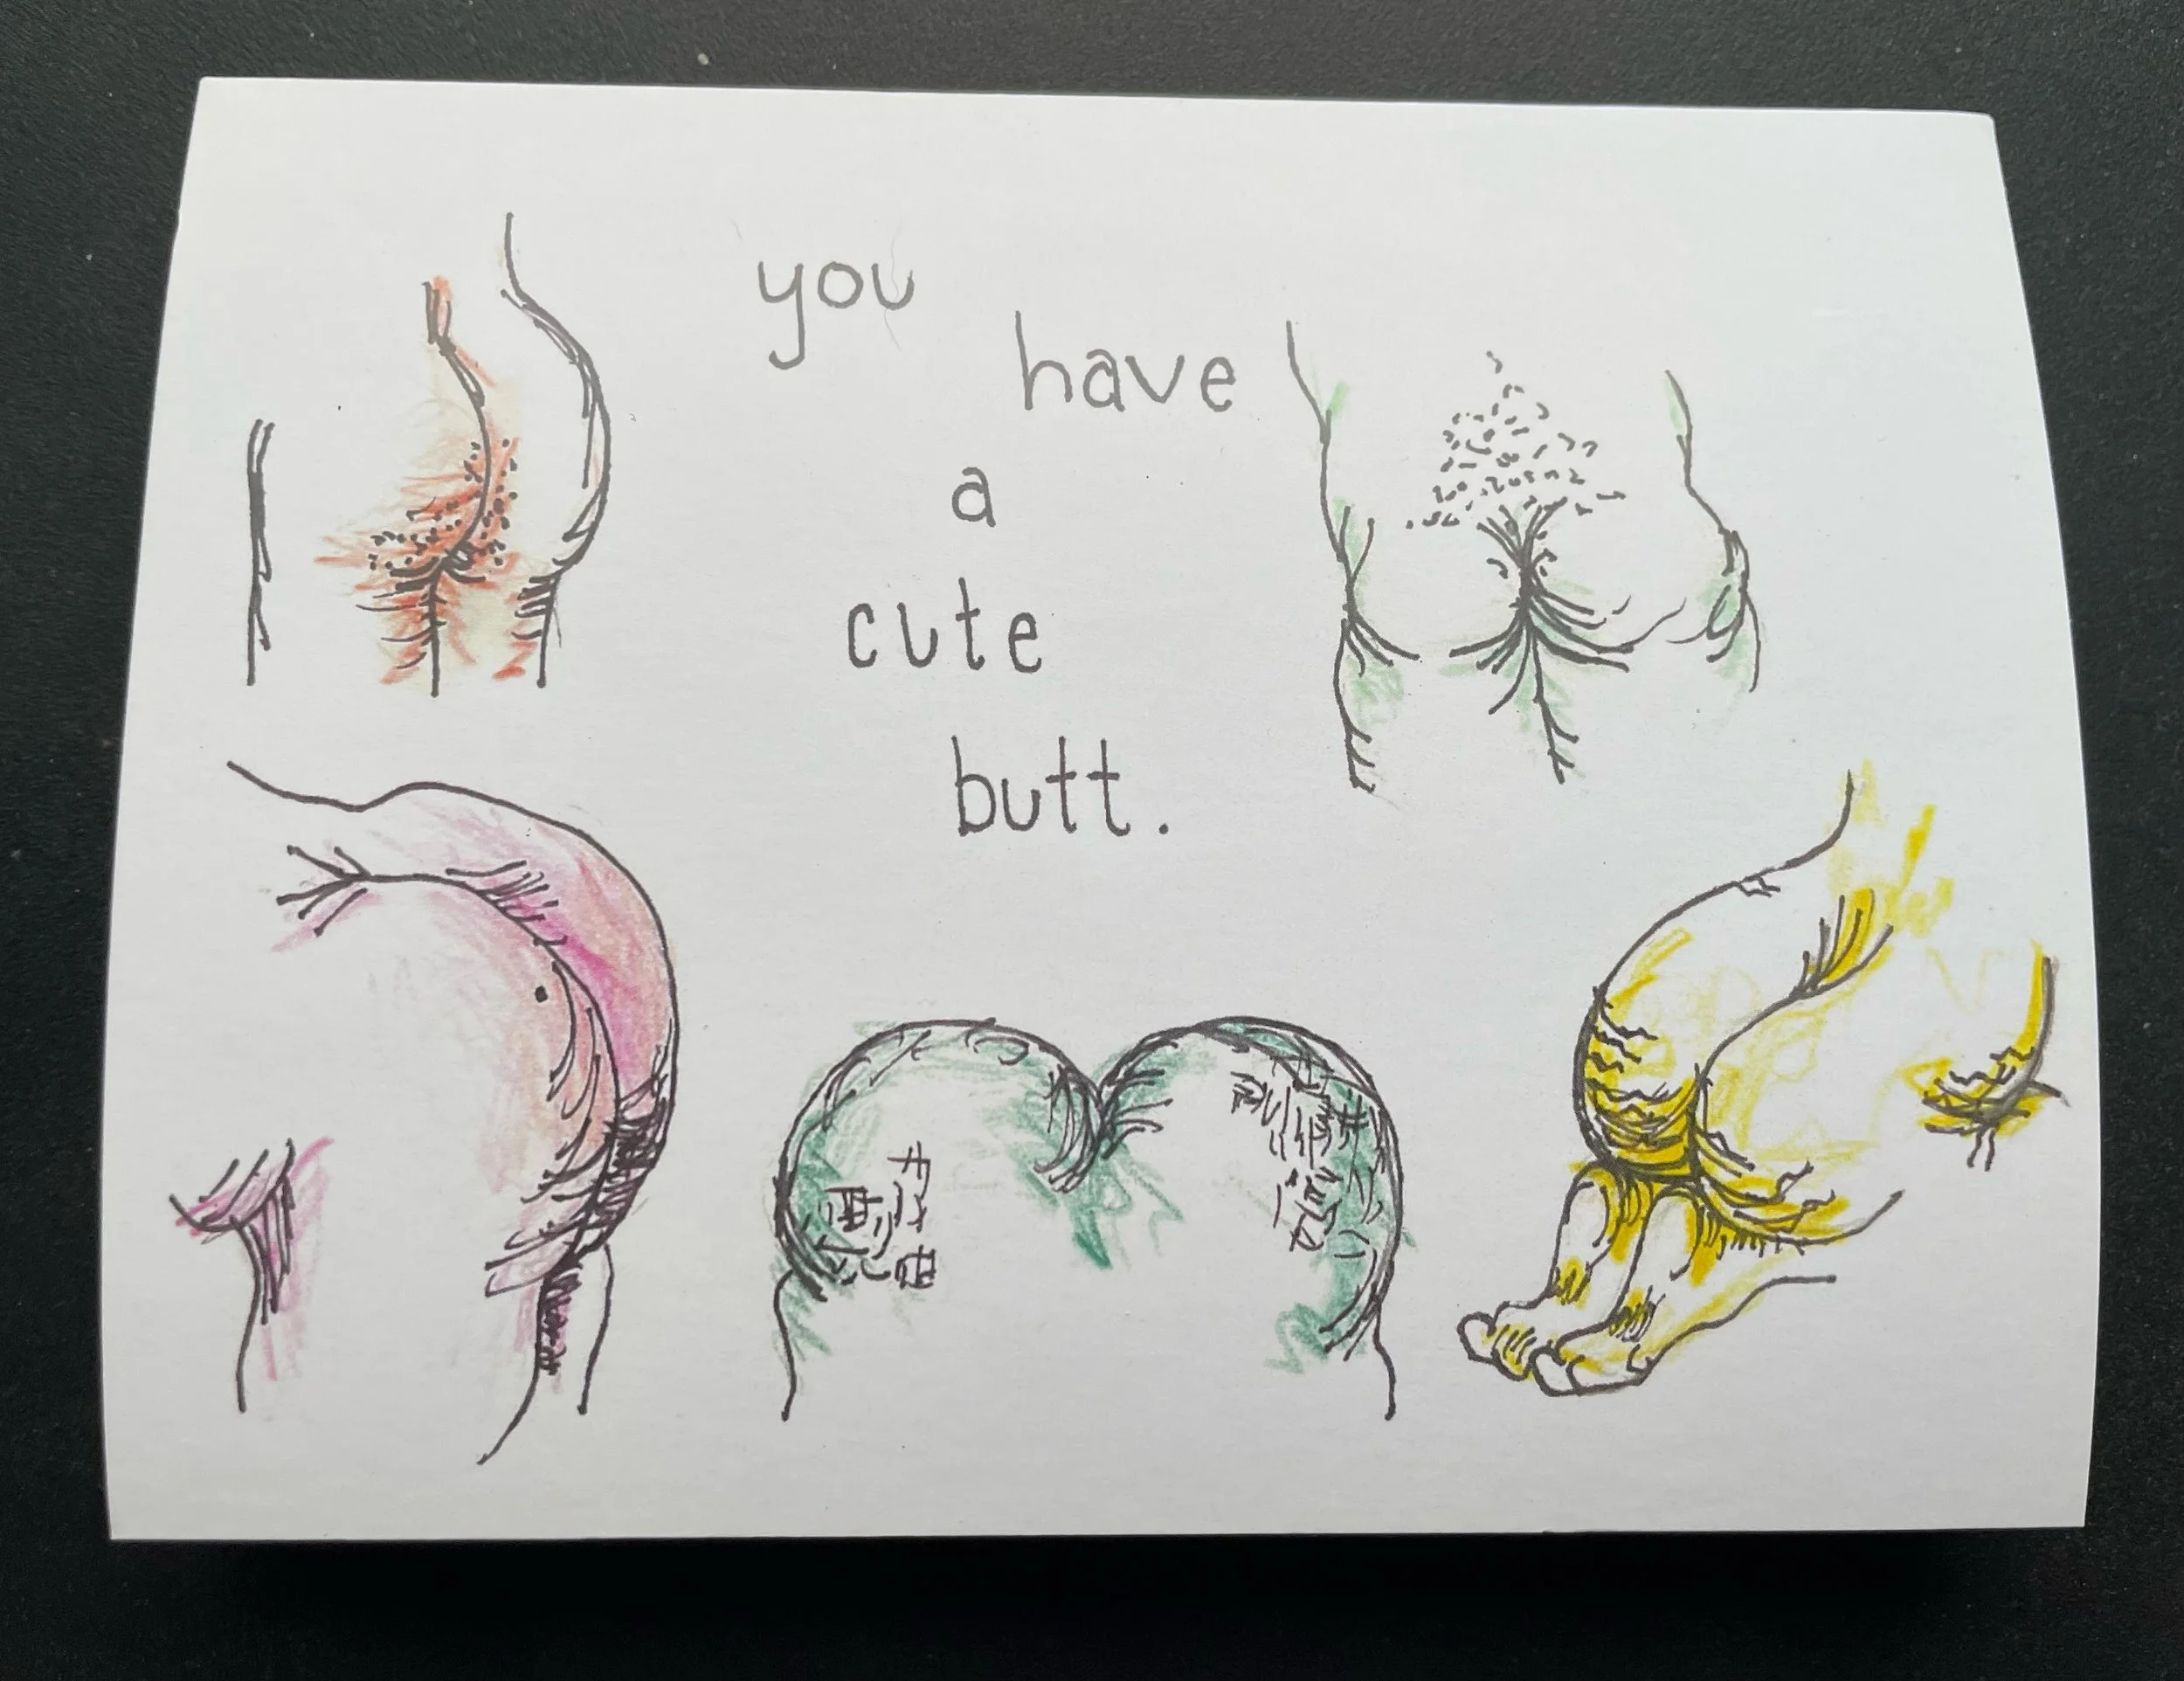 you
have
a
cute
butt.